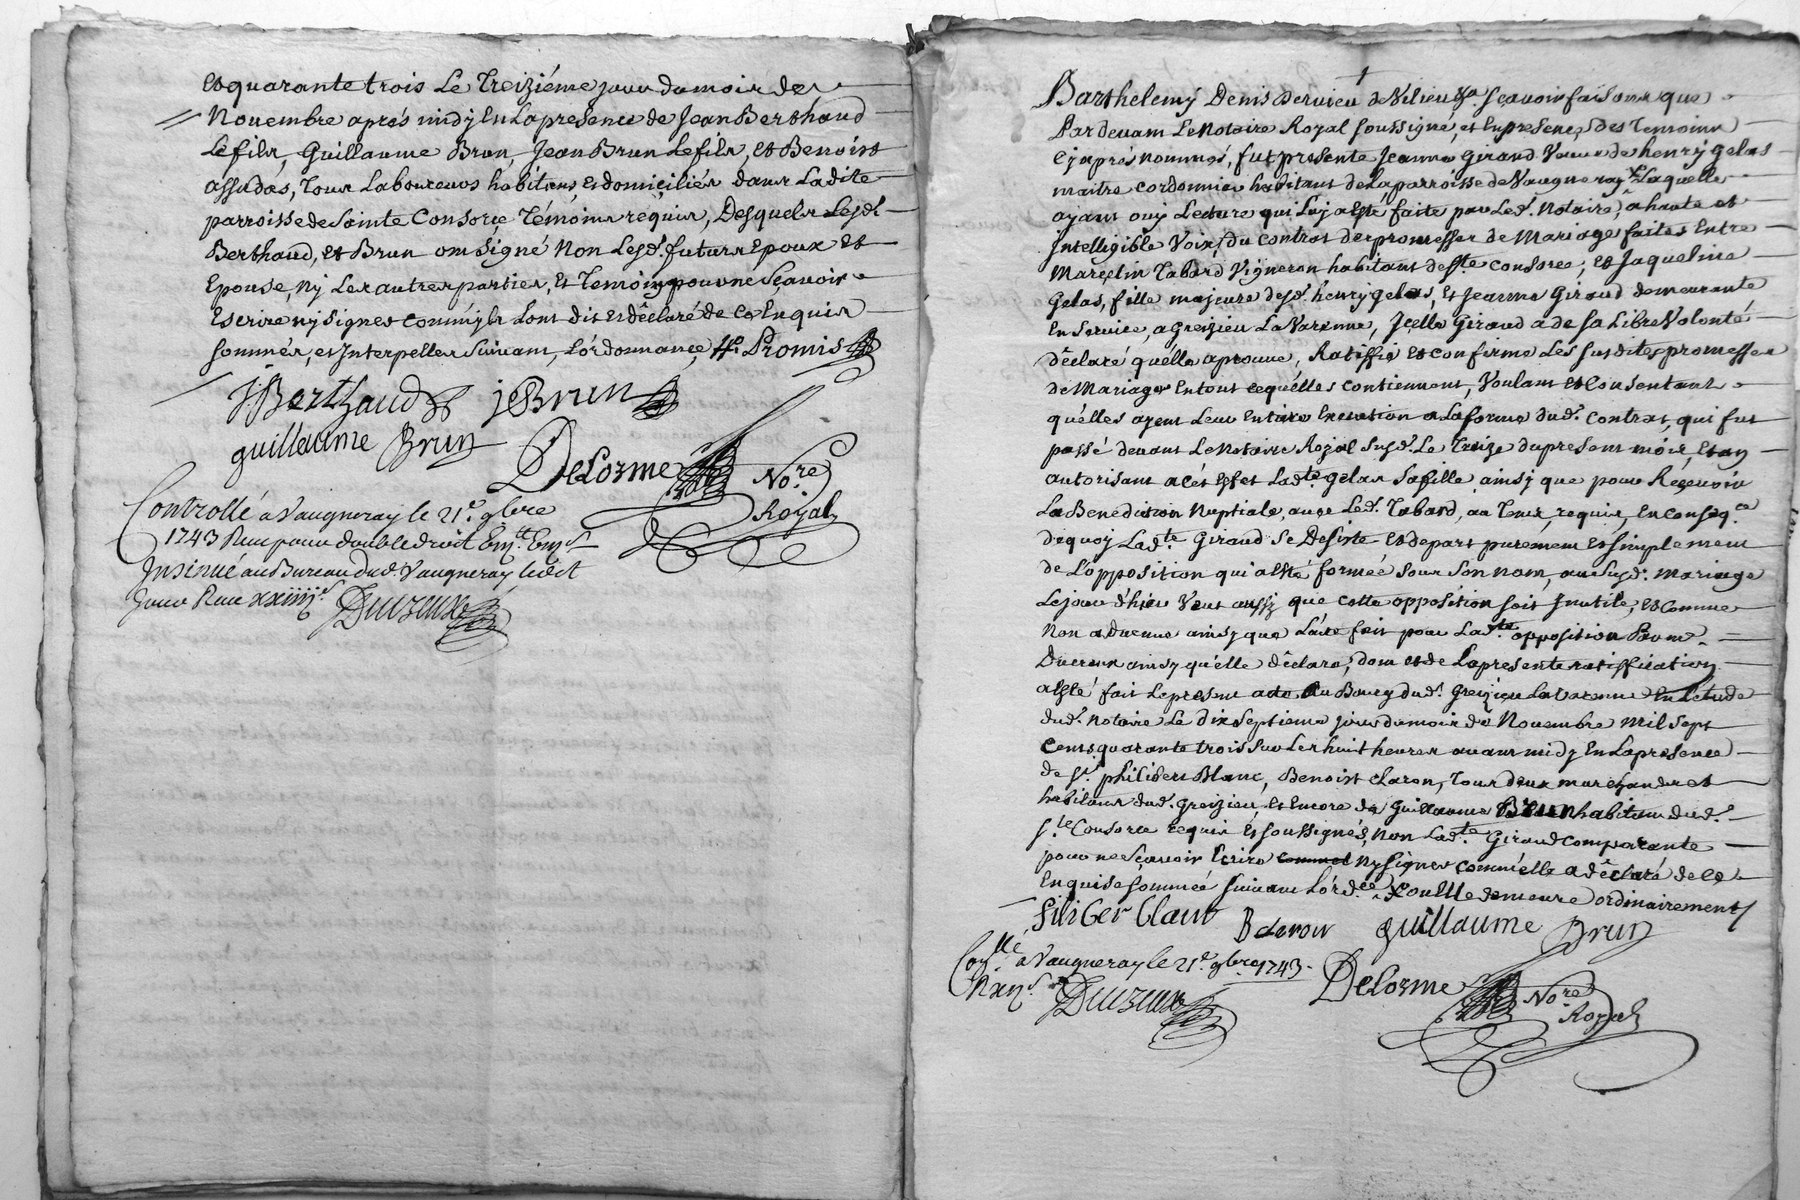 Et quarante trois Le Treiziéme jour du mois de
Novembre aprés midy En La presence de Jean Berthaud
Le fils, Guillaume Brun, Jean Brun Le fils, et Benoist
assadas, Tous Laboureurs habitans et domiciliés dans Ladite
parroisse de Sainte Consorçe Témoins requis, Desquels Lesds
Berthaud, et Brun ont Signé Non Lesd. futurs Epoux Et
Epouse, ny Les autres parties, Et Temoins pour ne Sçavoir
Escrire ny Signer comm'ils L'ont dit Et déclaré de ce Enquis
sommés, et Interpellés Suivant, L'ordonnance, Promis
J Berthaud jeBrun
guillaume Brun
DeLorme No.re
Royal
Controllé à Vaugneray le 21e 9bre
1743 Reçu pour double droit
Insinué au Bureau dud. Vaugneray ledit
Jour Reçu xxiiii s
Duvzeux
Barthelemy Denis Dervieu de Vilieu Sçavoir faisons que
Pardevant Le Notaire Royal soussigné, et En presence des Temoins
Cy aprés nommés, fut presente Jeanne Giraud Veuve de henry gelas
maitre cordonnier habitant de La parroisse de Vaugneray Laquelle
ayant ouy Lecture qui Luy a Esté faite par Led. Notaire, a haute et
Intelligible Voix, du contrat de promesses de Mariage faites Entre
Marcelin Tabard Vigneron habitant de Ste Consorce, et Jaqueline
Gelas, fille majeure desd. henry gelas, Et Jeanne Giraud demeurante
En Service, a Greizieu La Varenne, Icelle Giraud a de sa Libre Volonté
déclaré qu'élle aprouve, Ratiffie et confirme Les susdites promesses
de Mariage En tout ce qu'élles contiennent, Voulant et Consentant
qu'élles ayent Leur Entiere Execution a La forme dud. Contrat, qui fut
passé devant Le Notaire Royal susd. Le Treize du present mois, Et an
autorisant a cet Effet Lad.te gelas sa fille, ainsy que pour Reçevoir
La Benediction Nuptiale, avec Led. Tabard, au Tems, requis, En conseq.ce
de quoy Lad.te Giraud Se Desiste et depart purement Et simplement
de L'opposition qu'a Esté formée sous Son nom, au susd. mariage
Le jour d'hier Veut aussy que cette opposition soit Inutile, et Comme
Non advenue ainsy que L'acte fait pour Lad.te opposition
ainsy qu'elle déclare, dont et de La presente ratiffication
a Esté fait Le present acte Au Bourg dud. Greizieu La Varenne En L'etude
dud. Notaire Le dix septieme jour du mois de Novembre Mil Sept
Cents quarante trois sur Les huit heures avant midy En La presence
de Sr. philibert Blanc, Benoist Claron, Tous deux marchands et
habitans dud. Greizieu, et Encore de Guillaume Brun habitant dud.
S.te Consorce requis Et soussignés, Non Lad.te Giraud comparante
pour ne Sçavoir Ecrire ny Signer comm'élle a déclaré de ce
Enquise sommée suivant L'ord.ce ou Elle demeure ordinairement
filiber blanc B claron guillaume Brun
Con.llé à Vaugneray le 21e 9bre 1743
Duvzeux
DeLorme No.re
Royal